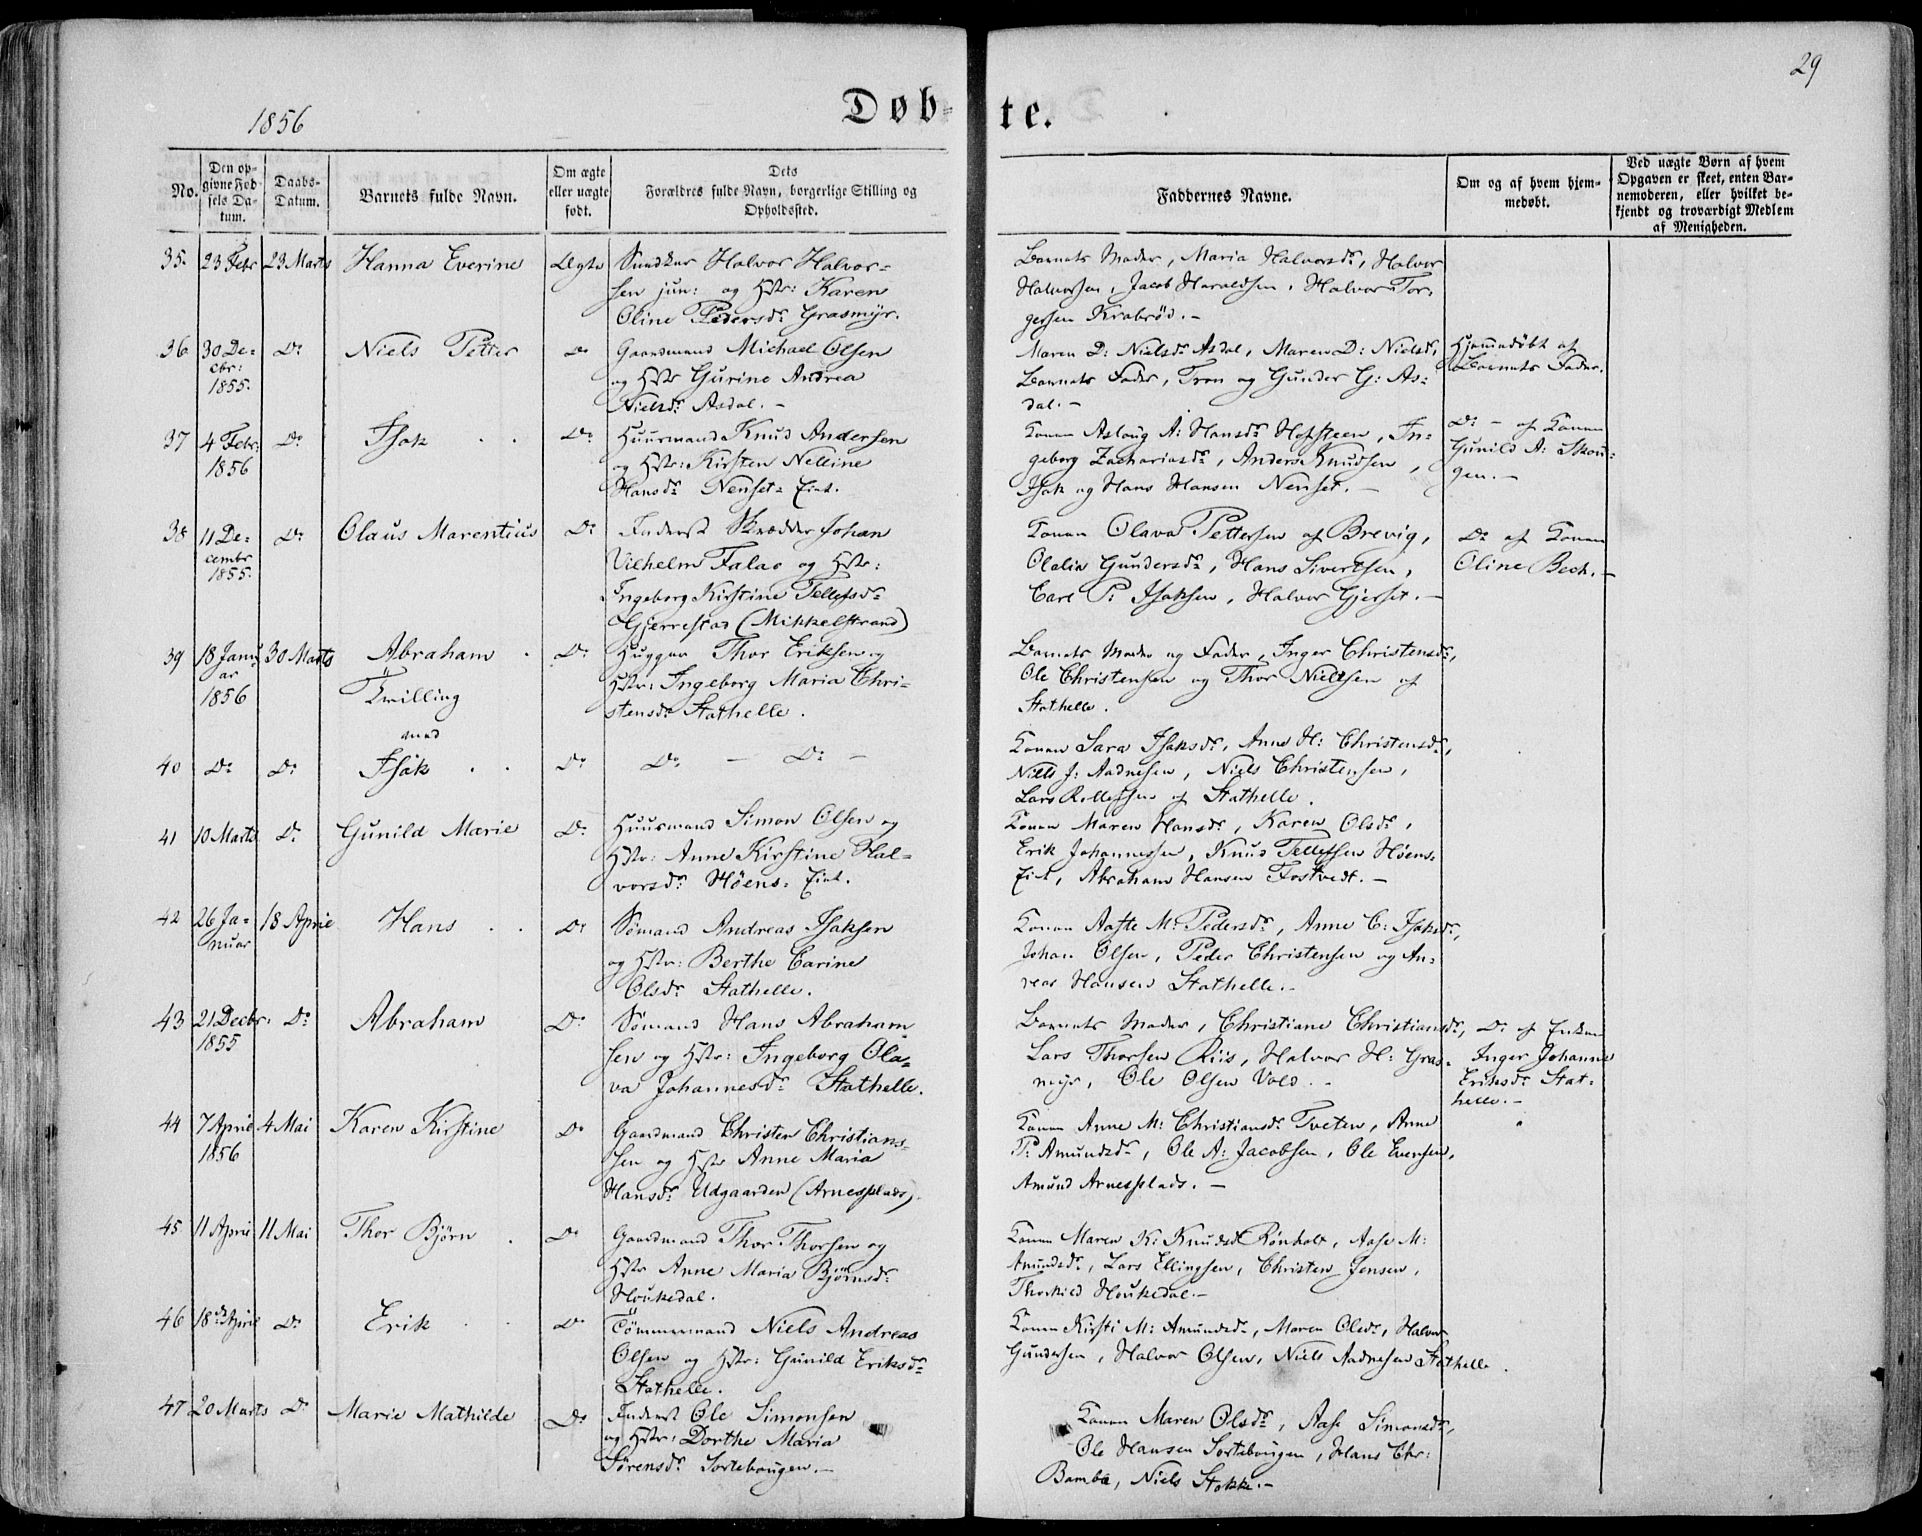 29
1856
Døb-
te.
No.
Den op-
givne Fød-
sels Da-
tum.
Daabs-
Datum.
Barnets fulde Navn.
Om ægte
eller uægte
født.
Dets
Forældres fulde Navn, borgerlige Stilling og
Opholdssted.
Faddernes Navne.
Om og af hvem hjem-
medøbt.
Ved uægte Børn af hvem
Opgaven er skeet, enten Bar-
nemoderen, eller hvilket be-
kjendt og troværdigt Medlem
af Menigheden.
35. 23 Febr 23 Marts Hanna Everine Ægte
Halvor Halvor-
sen jun: og Hstr: Karen
Oline Pedersdr Grasmyr.
Barnets Moder, Maria Halvorsdr, Halvor
Halvorsen, Jacob Haraldsen, Halvor Tor-
gersen Krabrød. -
36 30 De-
cbr:
1855.
Do Niels Petter Do
Gaardmand Michael Olsen
og Hstr Gurine Andrea
Nielsdr Asdal. -
Maren D: Nielsdr Asdal, Maren D: Nielsdr,
Barnets Fader, Tron og Gunder G: As-
dal. -
Hjemmedøbt af
Barnets Fader.
37 4 Febr:
1856
Do Isak Do
Huusmand Knud Andersen
og Hstr: Kirsten Nelline
Hansdr Nenset- Eiet.
Konen Asloug A: Hansdr Hofsteen, In-
geborg Zachariasdr, Anders Knudsen,
Isak og Hans Hansen Nenset. -
Do - af Konen
Gunild A: Skou-
gen. -
38 11 De-
cembr
1855.
Do Olaus Marentius Do
Inderst Skrædder Johan
Vilhelm Falao og Hstr:
Ingeborg Kirstine Tellefsdr
Gjerrestad (Mikkelstrand)
Konen Olava Pettersen af Brevig,
Olalia Gundersdr, Hans Sivertsen,
Carl P: Isaksen, Halvor Gjerset. -
Do af Konen
Oline Bech. -
39 18 Janu-
ar
1856
30 Marts Abraham Do
Tvilling
med
Hugger Thor Eriksen og
Hstr: Ingeborg Maria Chri-
stensdr Stathelle.
Barnets Moder og Fader, Inger Christensdr,
Ole Christensen og Thor Nielsen af
Stathelle.
40 Do Do Isak Do Do - Do -
Konen Sara Isaksdr, Anne H: Christensdr,
Niels J: Aadnesen, Niels Christensen,
Lars Rollefsen af Stathelle.
41 10 Marts Do Gunild Marie Do
Huusmand Simon Olsen og
Hstr: Anne Kirstine Hal-
vorsdr Høens- Eiet.
Konen Maren Hansdr, Karen Olsdr,
Erik Johannesen, Knud Tellefsen Høens-
Eiet, Abraham Hansen Fostvedt. -
42 26 Ja-
nuar
18 April Hans Do
Sømand Andreas Isaksen
og Hstr: Berthe Carine
Olsdr Stathelle.
Konen Aaste M: Pedersdr, Anne C: Isaksdr,
Johan Olsen, Peder Christensen og An-
reas Hansen Stathelle. -
43 21 Decbr.
1855
Do Abraham Do
Sømand Hans Abraham
sen og Hstr: Ingeborg Ola-
va Johannesdr Stathelle.
Barnets Moder, Christiane Christiansdr,
Lars Thorsen Riis, Halvor H: Gras-
myr, Ole Olsen Vold. -
Do af Enken
Inger Johanne
Eriksdr Stat-
helle. -
44 7 April
1856
4 Mai Karen Kirstine Do
Gaardmand Christen Christian-
sen og Hstr Anne Maria
Hansdr Udgaarden (Arnesplads).
Konen Anne M: Christiansdr Tveten, Anne
P: Amundsdr, Ole A: Jacobsen, Ole Evensen,
Amund Arnesplads. -
45 11 April 11 Mai Thor Bjørn Do
Gaardmand Thor Thorsen og
Hstr Anne Maria Bjørnsdr
Houkedal.
Konen Maren K: Knudsdr Rønholt, Aase M:
Amundsdr, Lars Ellingsen, Christen Jensen,
Thorkild Houkedal. -
46 18de April Do Erik Do
Tømmermand Niels Andreas
Olsen og Hstr: Gunild Eriksdr
Stathelle.
Konen Kirsti M: Amundsdr, Maren Olsdr, Halvor
Gundersen, Halvor Olsen, Niels Aadnesen Stathelle.
47 20 Marts Do Marie Mathilde Do
Inderst Ole Simonsen
og Hstr: Dorthe Maria
Sørensdr Sortebougen. -
Konen Maren Olsdr, Aase Simonsdr,
Ole Hansen Sortebougen, Hans Chr:
Bamba, Niels Stokke. -